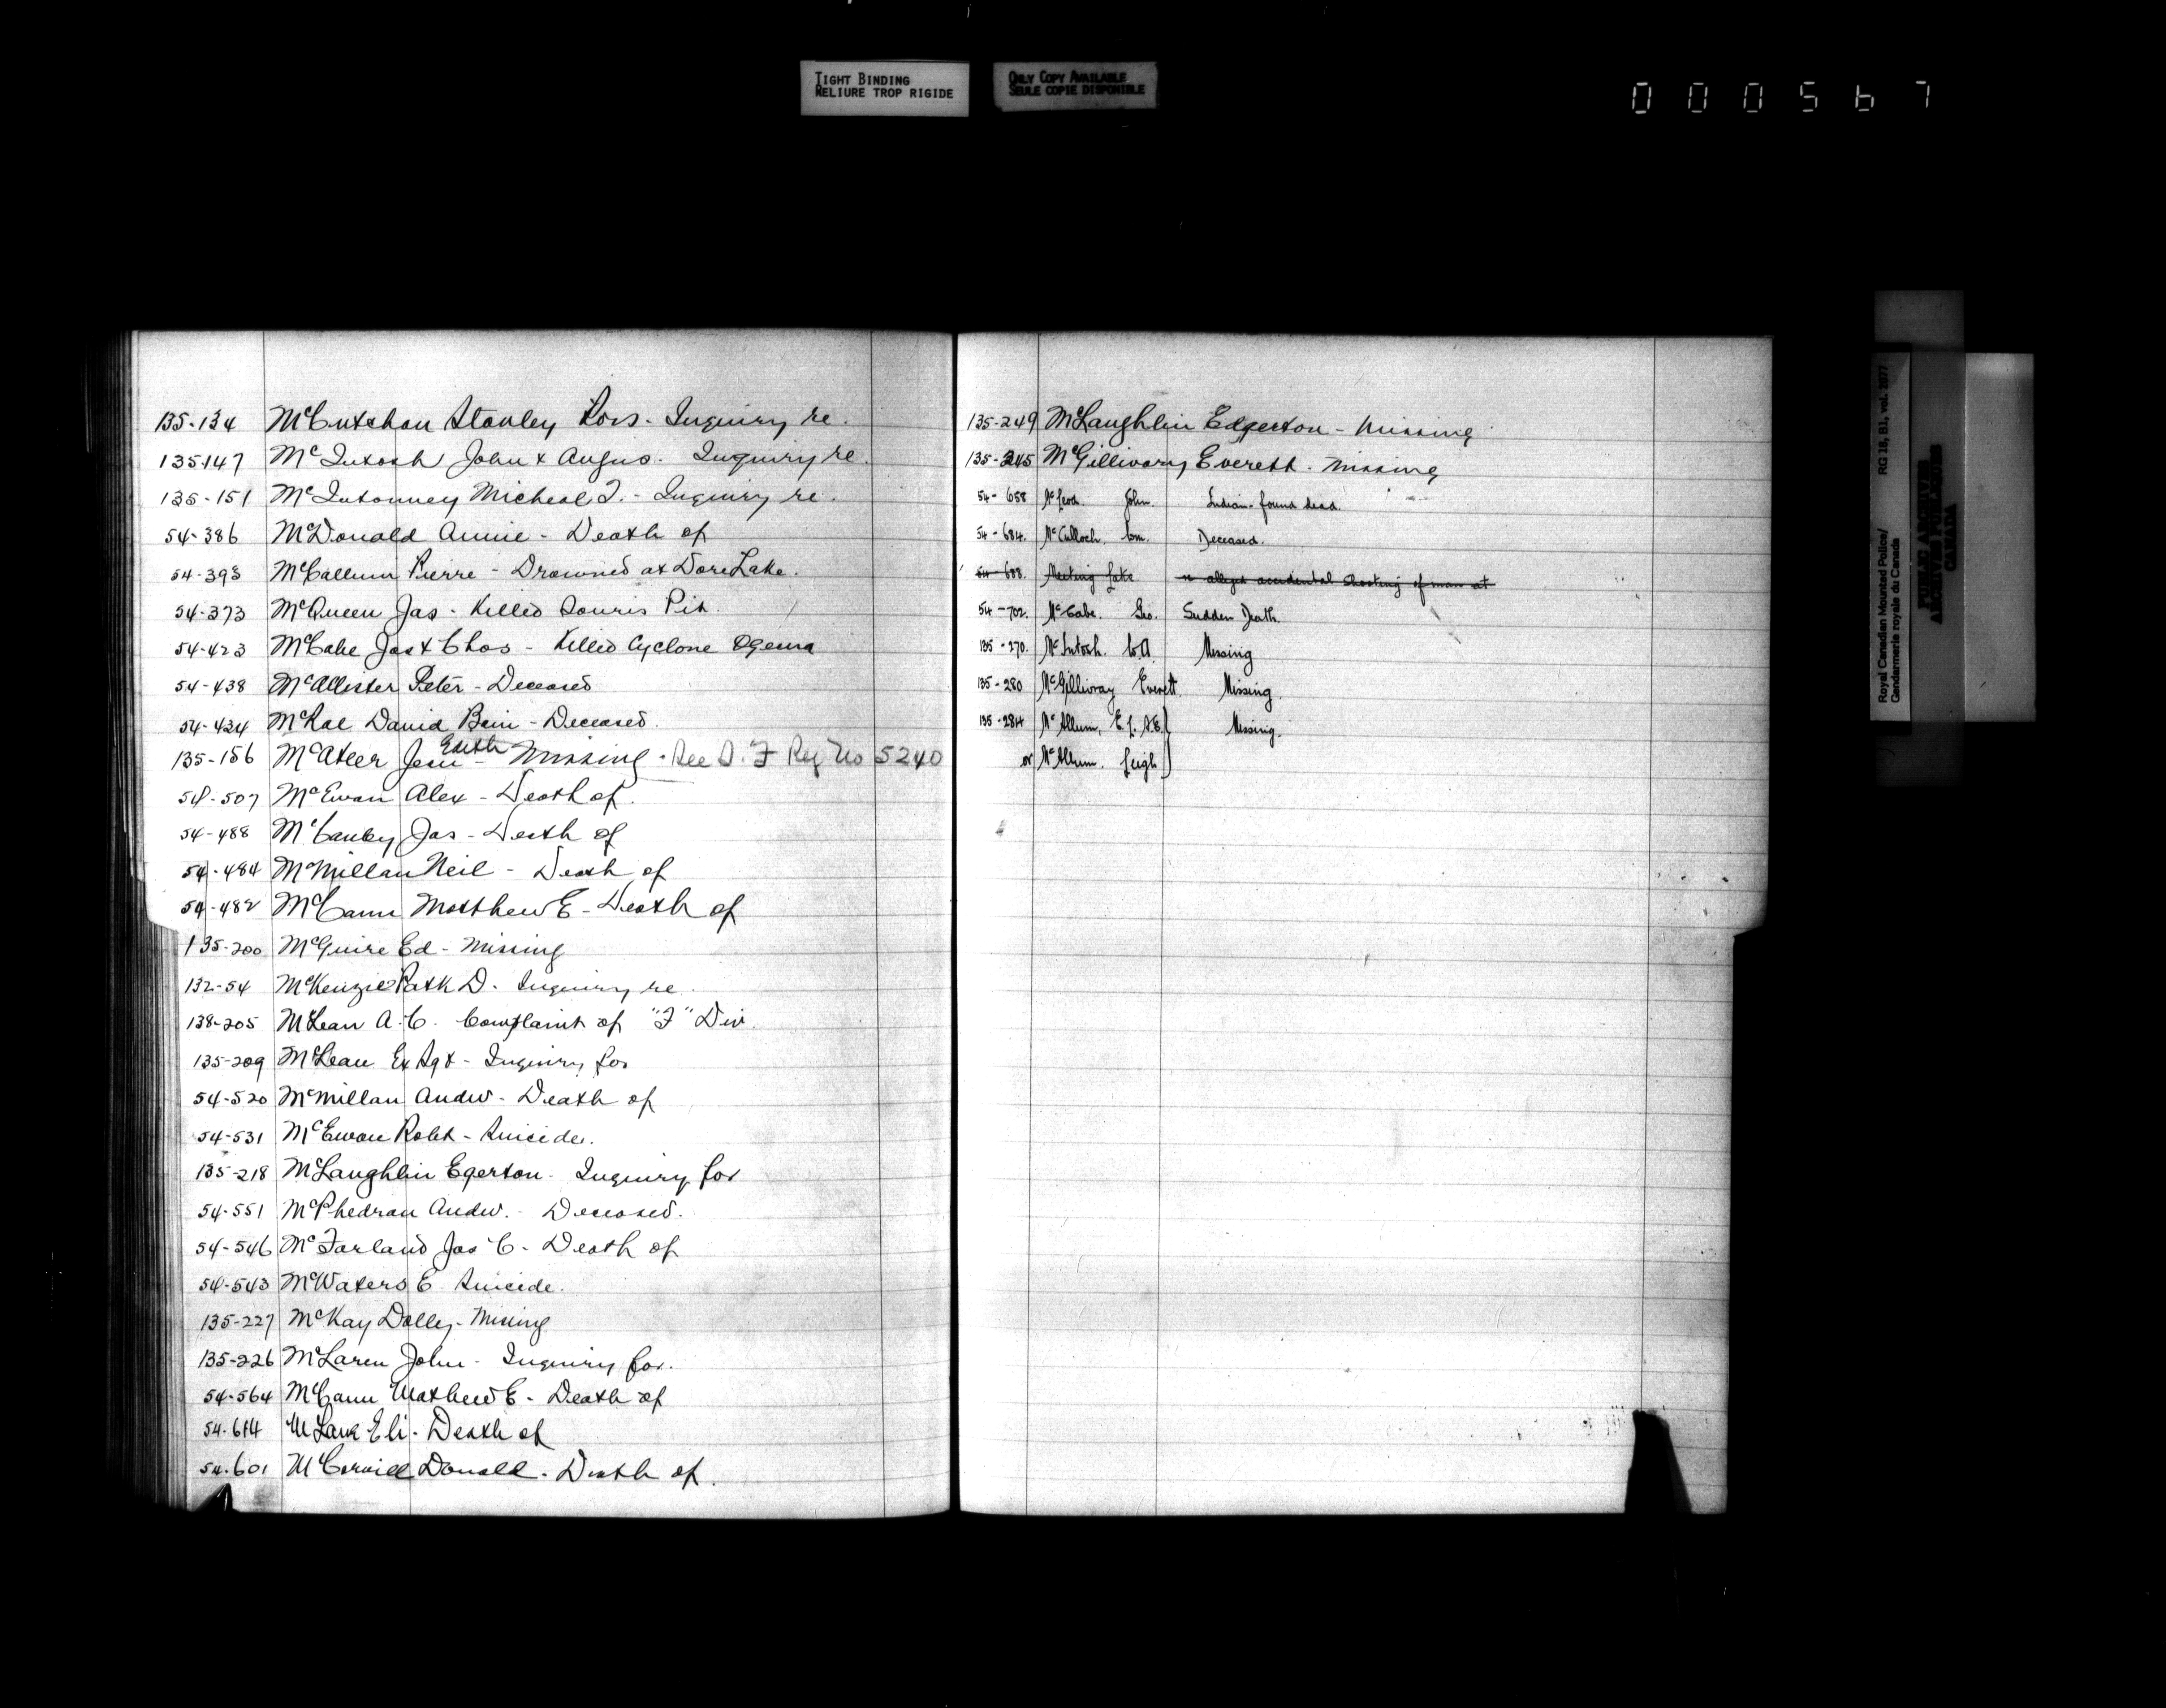 TIGHT BINDING
RELIURE TROP RIGIDE
ONLY COPY AVAILABLE
SEULE COPIE DISPONIBLE
000567
135-134 McCutchan Stanley Ross - Inquiry re.
135-147 McIntosh John & Angus - Inquiry re.
135-151 Micheal J. - Inquiry re.
54-386 McDonald Annie - Death of
54-393 McCallum Pierre - Drowned at Dore Lake.
54-373 McQueen Jas - Killed Souris Pit.
54-423 McCabe Jas & Chas - Killed Cyclone Ogema
54-438 McAllister Peter - Deceased
54-424 McRae David Bain - Deceased.
135-156 McAteer Edith - Missing - See D. F Reg No 5240
54-507 McEwan Alex - Death of.
54-488 Jas - Death of
54-484 McMillan Neil - Death of
54-482 McCann Matthew E - Death of
135-200 McGuire Ed - Missing
132-54 McKenzie Patk D. Inquiry re.
138-205 McLean A.C. Complaint of "F" Div.
135-209 McLean Ex Sgt - Inquiry for
54-520 McMillan Andw - Death of
54-531 McEwan Robt - Suicide.
135-218 McLaughlin Egerton - Inquiry for
54-551 McPhedran Andw. - Deceased.
54-546 McFarland Jas C - Death of
54-543 McWaters E. Suicide.
135-227 McKay Dolley - Missing
135-226 McLaren John - Inquiry for.
54-564 McCann Mathew E - Death of
54-614 Eli - Death of
54-601 Donald - Death of.
135-249 McLaughlin Edgerton - Missing
135-245 McGillivary Everett - Missing
54-658 McLeod John. Indian - found dead.
54-684. McCulloch Wm. Deceased.
54-688. Meeting Lake re alleged accidental shooting of man at
54-702. McCabe. Geo. Sudden Death.
135-270. McIntosh. W.A. Missing
135-280 McGillivray Everett. Missing.
135-284 McAllum, E.L.A.E. Missing.
or McAllum. Leigh
Royal Canadian Mounted Police/ RG 18, B1, vol. 2077
Gendarmerie royale du Canada
PUBLIC ARCHIVES
ARCHIVES PUBLIQUES
CANADA